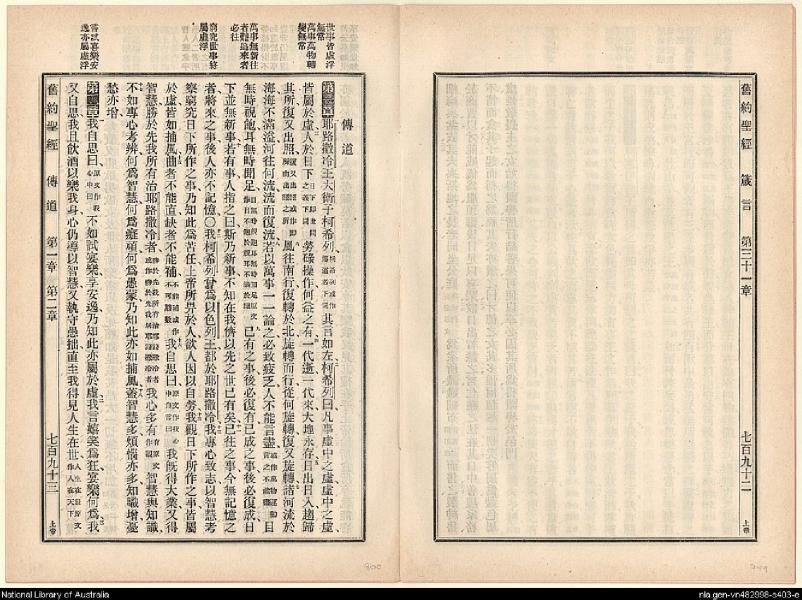 舊約聖經 箴言 第三十一章 七百九十二 上帝
世事皆虛浮
無常
萬事萬物轉
變無常
萬事無新往
者難追來者
必往
窮究世事終
屬虛浮
嘗試喜樂安
逸亦屬虛浮
傳道
第一章 耶路撒冷王大衛子柯希列 其言如左柯希列曰凡事虛中之虛虛中之虛
皆屬於虛人於日下 勞碌操作何益之有一代逝一代來大地永存日出日入趨歸
其所復又出照 風往南行復轉於北旋轉而行從何旋轉復又旋轉諸河流於
海海不滿溢河往何流流而復流若以萬事一一論之必致疲乏人不能言盡 目
無時視飽耳無時聞足 已有之事後必復有已成之事後必復成日
下並無新事若有事人指之曰斯乃新事不知在我儕以先之世已有矣已往之事今無記憶之
者將來之事後人亦不記憶〇我柯希列曾為以色列王都於耶路撒冷我專心致志以智慧考
察窮究日下所作之事乃知此為苦任上帝所畀於人欲人因以自勞我觀日下所作之事皆屬
於虛皆如捕風曲者不能直缺者不能補 我自思曰 我既得大業又得
智慧勝於先我所有治耶路撒冷者 我心多有 智慧與知識
不如專心考辨何為智慧何為癡碩何為愚蒙乃知此亦如捕風蓋智慧多煩惱亦多知識增憂
愁亦增
第二章 我自思曰 不如試宴樂享安逸乃知此亦屬於虛我言嬉笑為狂宴樂何為我
又自思我且飲酒以樂我身心仍導以智慧又執守愚拙直至我得見人生在世
舊約聖經 傳道 第一章 第二章 七百九十三 上帝
800
799
National Library of Australia
nla.gen-vn482998-s403-e